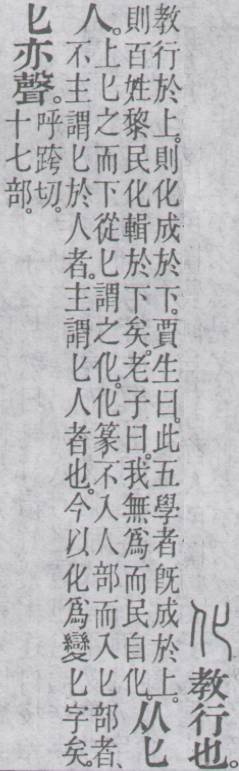 化教行也。
教行於上。則化成於下。賈生曰。此五學者旣成於上。
則百姓黎民化輯於下矣。老子曰。我無爲而民自化。
从匕
人。
上匕之而下從匕謂之化。化篆不入人部而入匕部者、
不主謂匕於人者。主謂匕人者也。今以化爲變匕字矣。
匕亦聲。
呼跨切。
十七部。